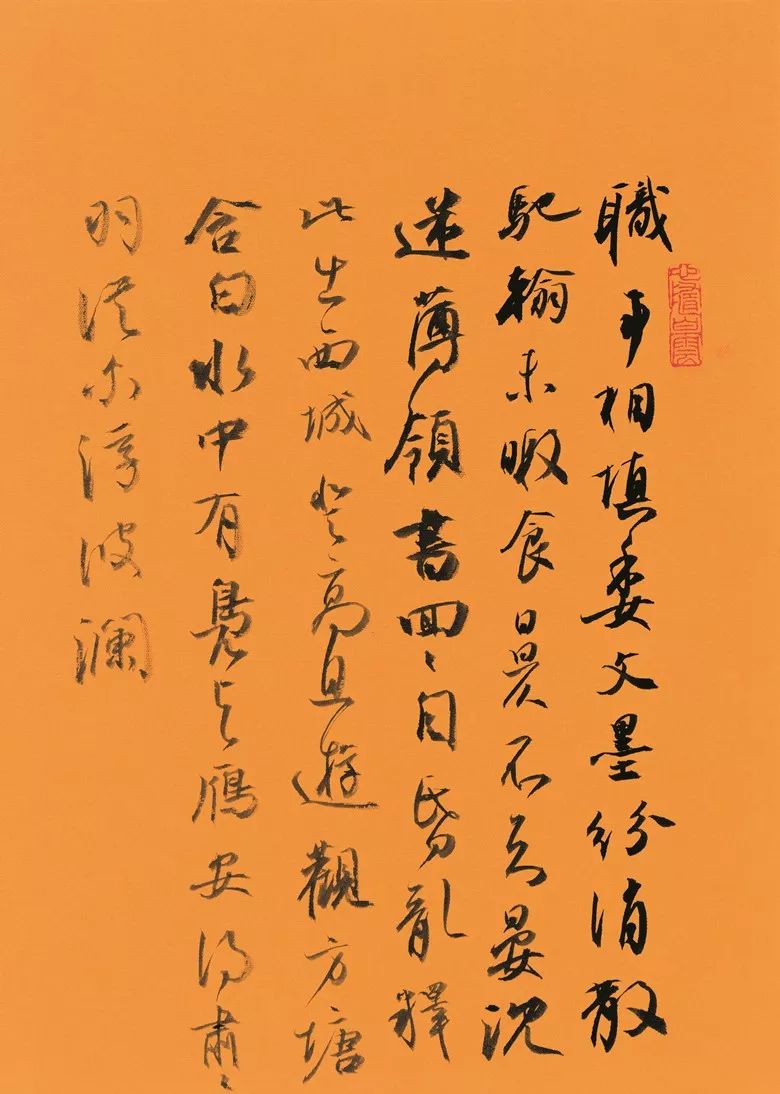 職事相填委文墨紛消散
馳翰未暇食日昃不知晏沈
迷薄領書回〻目昏亂釋
此出西城登高且遊觀方塘
含白水中有鳧与鴈安得肅〻
羽從尔浮波瀾